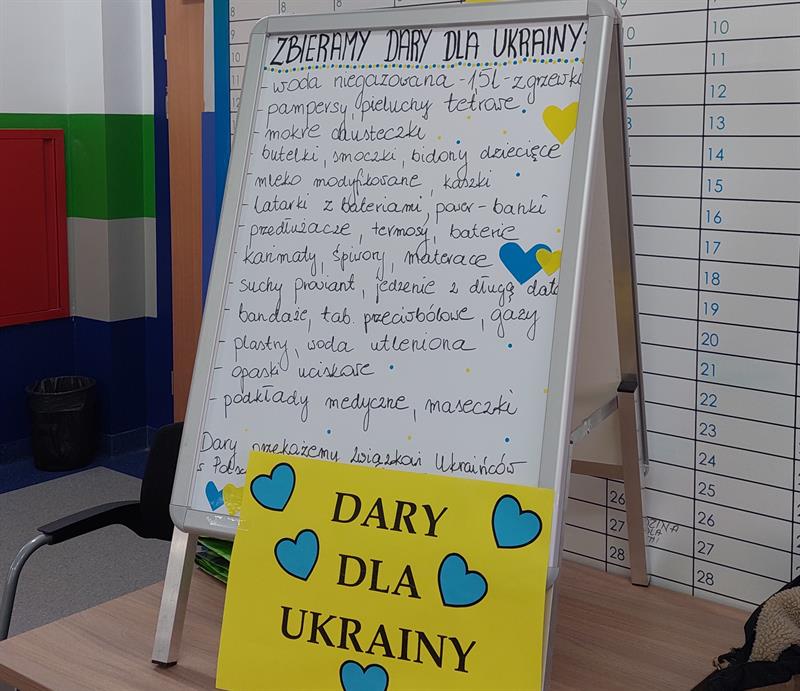 ZBIERAMY DARY DLA UKRAINY:
- woda niegazowana - 1,5l - zgrzewki
- pampersy, pieluchy tetrowe
- mokre chusteczki
- butelki, smoczki, bidony dziecięce
- mleko modyfikowane, kaszki
- latarki z bateriami, power-banki
- przedłużacze, termosy, baterie
- karimaty, śpiwory, materace
- suchy prowiant, jedzenie z długą datą
- bandaże, tab. przeciwbólowe, gazy
- plastry, woda utleniona
- opaski uciskowe
- podkłady medyczne, maseczki
Dary przekażemy Związkowi Ukraińców
DARY
DLA
UKRAINY
8
9
10
8
9
10
11
12
13
14
15
16
17
18
19
20
21
22
23
24
25
26
27
28
26
27
28